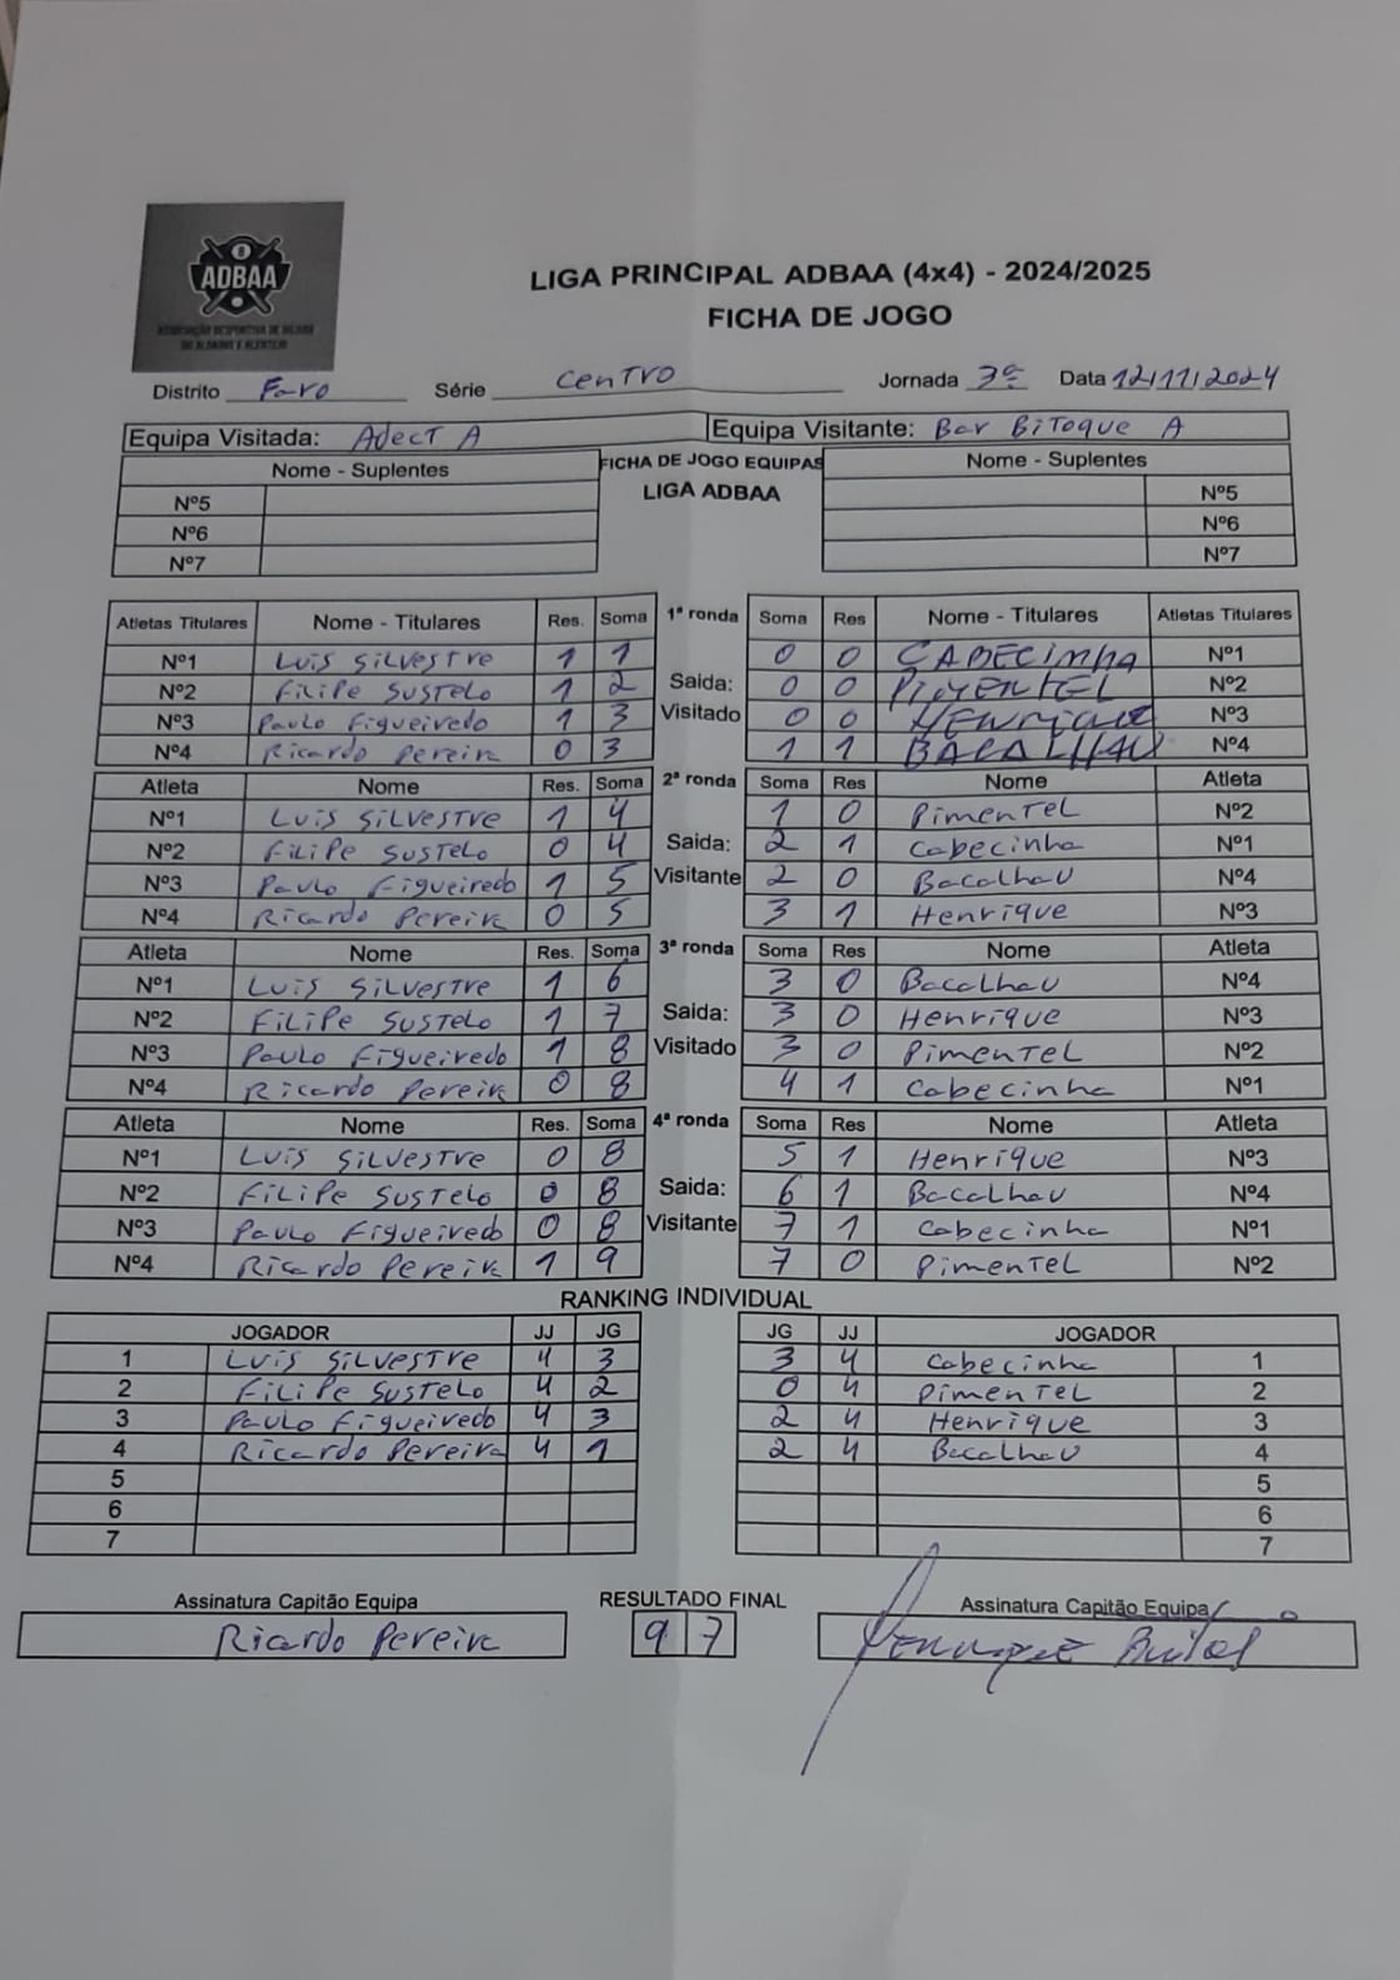 ADBAA
ASSOCIAÇÃO DESPORTIVA DE BILHAR
DO ALGARVE E ALENTEJO
LIGA PRINCIPAL ADBAA (4x4) - 2024/2025
FICHA DE JOGO
Distrito Faro Série Centro Jornada 3ª Data 12/11/2024
Equipa Visitada: Adect A Equipa Visitante: Bar BiToque A
Nome - Suplentes FICHA DE JOGO EQUIPAS Nome - Suplentes
LIGA ADBAA
Nº5 Nº5
Nº6 Nº6
Nº7 Nº7
Atletas Titulares Nome - Titulares Res. Soma 1ª ronda Soma Res Nome - Titulares Atletas Titulares
Nº1 Luis Silvestre 1 1 0 0 CABECINHA Nº1
Nº2 Filipe Sustelo 1 2 Saida: 0 0 PIMENTEL Nº2
Nº3 Paulo Figueiredo 1 3 Visitado 0 0 HENRIQUE Nº3
Nº4 Ricardo Pereira 0 3 1 1 BACALHAU Nº4
Atleta Nome Res. Soma 2ª ronda Soma Res Nome Atleta
Nº1 Luis Silvestre 1 4 1 0 Pimentel Nº2
Nº2 Filipe Sustelo 0 4 Saida: 2 1 Cabecinha Nº1
Nº3 Paulo Figueiredo 1 5 Visitante 2 0 Bacalhau Nº4
Nº4 Ricardo Pereira 0 5 3 1 Henrique Nº3
Atleta Nome Res. Soma 3ª ronda Soma Res Nome Atleta
Nº1 Luis Silvestre 1 6 3 0 Bacalhau Nº4
Nº2 Filipe Sustelo 1 7 Saida: 3 0 Henrique Nº3
Nº3 Paulo Figueiredo 1 8 Visitado 3 0 Pimentel Nº2
Nº4 Ricardo Pereira 0 8 4 1 Cabecinha Nº1
Atleta Nome Res. Soma 4ª ronda Soma Res Nome Atleta
Nº1 Luis Silvestre 0 8 5 1 Henrique Nº3
Nº2 Filipe Sustelo 0 8 Saida: 6 1 Bacalhau Nº4
Nº3 Paulo Figueiredo 0 8 Visitante 7 1 Cabecinha Nº1
Nº4 Ricardo Pereira 1 9 7 0 Pimentel Nº2
RANKING INDIVIDUAL
JOGADOR JJ JG JG JJ JOGADOR
1 Luis Silvestre 4 3 3 4 Cabecinha 1
2 Filipe Sustelo 4 2 0 4 Pimentel 2
3 Paulo Figueiredo 4 3 2 4 Henrique 3
4 Ricardo Pereira 4 1 2 4 Bacalhau 4
5 5
6 6
7 7
Assinatura Capitão Equipa RESULTADO FINAL Assinatura Capitão Equipa
Ricardo Pereira 9 7 Henrique